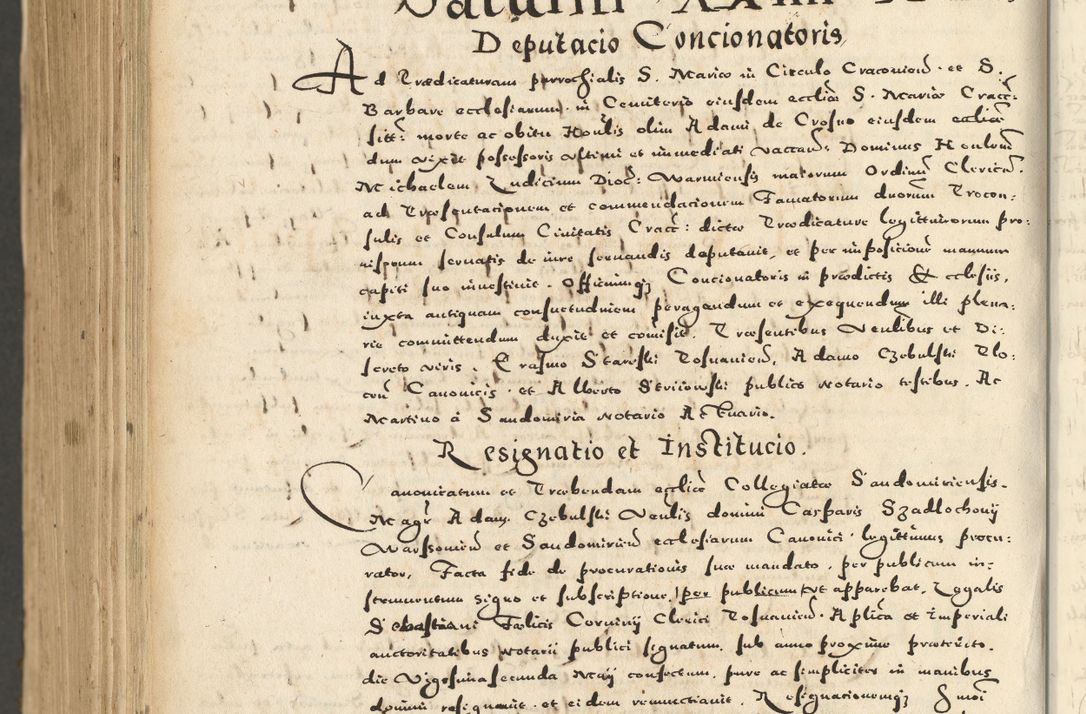 Deputacio Concionatoris
Ad Prædicaturam parrochialis S. Mariæ in Circulo Cracoviens. et S.
Barbare ecclesiarum in Cemiterio eiusdem eccliæ S. Mariæ Cracc:
sitt: morte ac obitu Honlis olim Adami de Crosno eiusdem eccliæ
dum vixit possessoris ultimi et immediati vaccan: Dominus Honlem
Michaelem Dioc: Warmiensis maiorum Ordinum Clericum.
ad Præsentacionem et commendacionem Famatorum duorum Procon:
sulis et Consulum Civitatis Cracc: dictæ Prædicature legittimorum pro:
visorum servatis de iure servandis deputavit, et per impositionem manuum
capiti suo investivit. Officiumq; Concionatoris in prædictis ecclesiis,
iuxta antiquam consuetudinem peragendum et exequendum illi plena:
rie committendum duxit et comisit. Præsentibus Venlibus et Di:
screto viris. Erasmo Starski Posnanien, Adamo Czebulski Plo:
cen Canonicis. et Alberto publico notario testibus. Ac
Martino à Sandomiria notario Actuario.
Resignatio et Institucio.
Canonicatum et Præbendam eccliæ Collegiatæ Sandomiriensis.
Magr Adam Czebulski Venlis domini Casparis Szadlochowij
Warssovien et Sandomirien ecclesiarum Canonici legittimus procu:
rator, Facta fide de procurationis suæ mandato, per publicum in:
strumentum signo et subscriptione per publicum ut apparebat,
Sebastiani Fælicis Corvinij Clerici Posnanien. Aplica et Imperiali
auctoritatibus Notarii publici signatum. sub anno proximo præterito.
die Vigesima secunda Maij confectum, pure ac simpliciter in manibus
domini resignavit. et eidem renunctiavit. Resignacionemq;